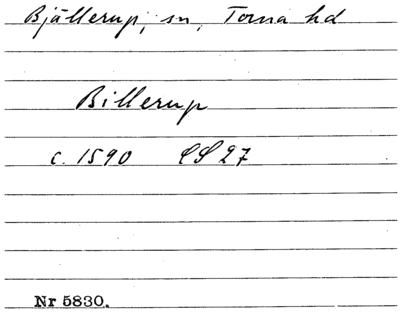 Bjällerup, sn, Torna hd
Billerup
c. 1590 CS 27
Nr 5830.